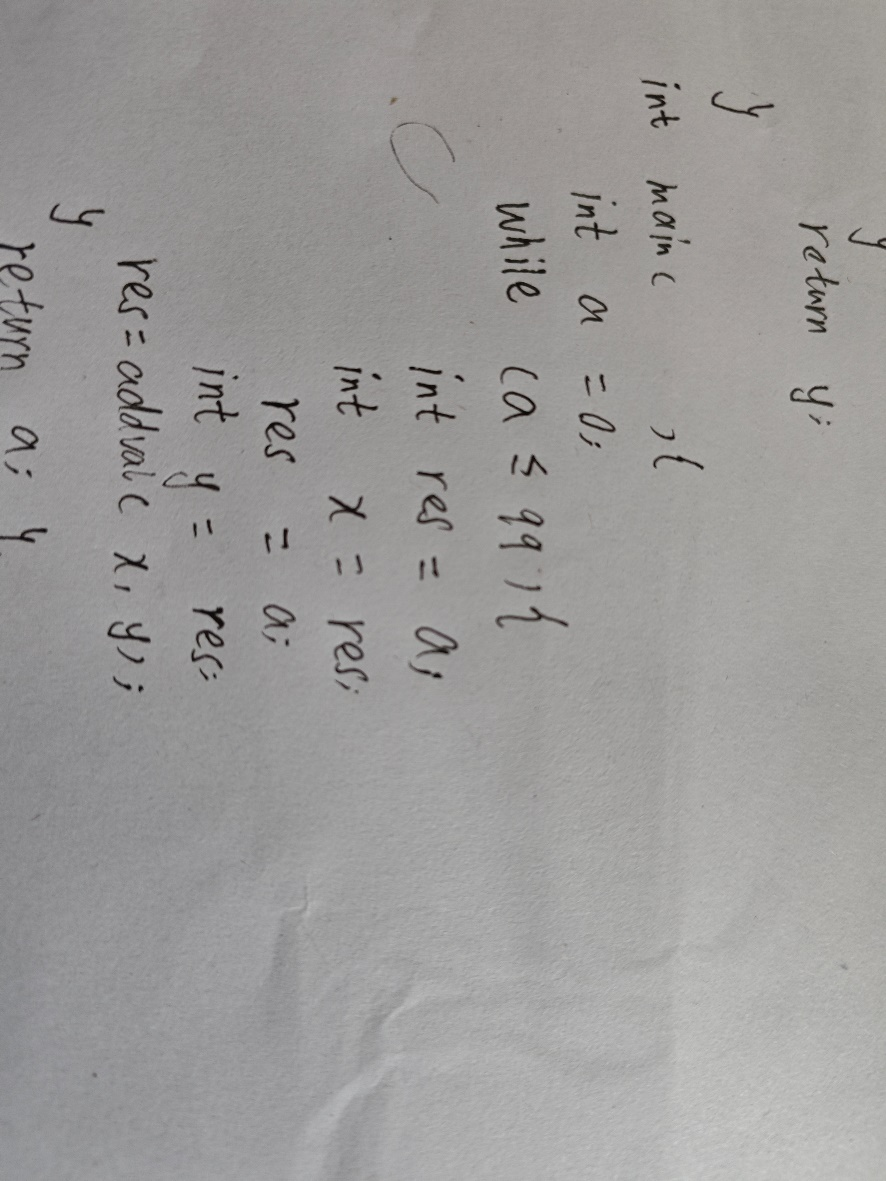 }
return y;
}
int main( ){
int a = 0;
while (a ≤ 99){
int res = a;
int x = res;
res = a;
int y = res;
res = addval( x, y);
}
return a; }